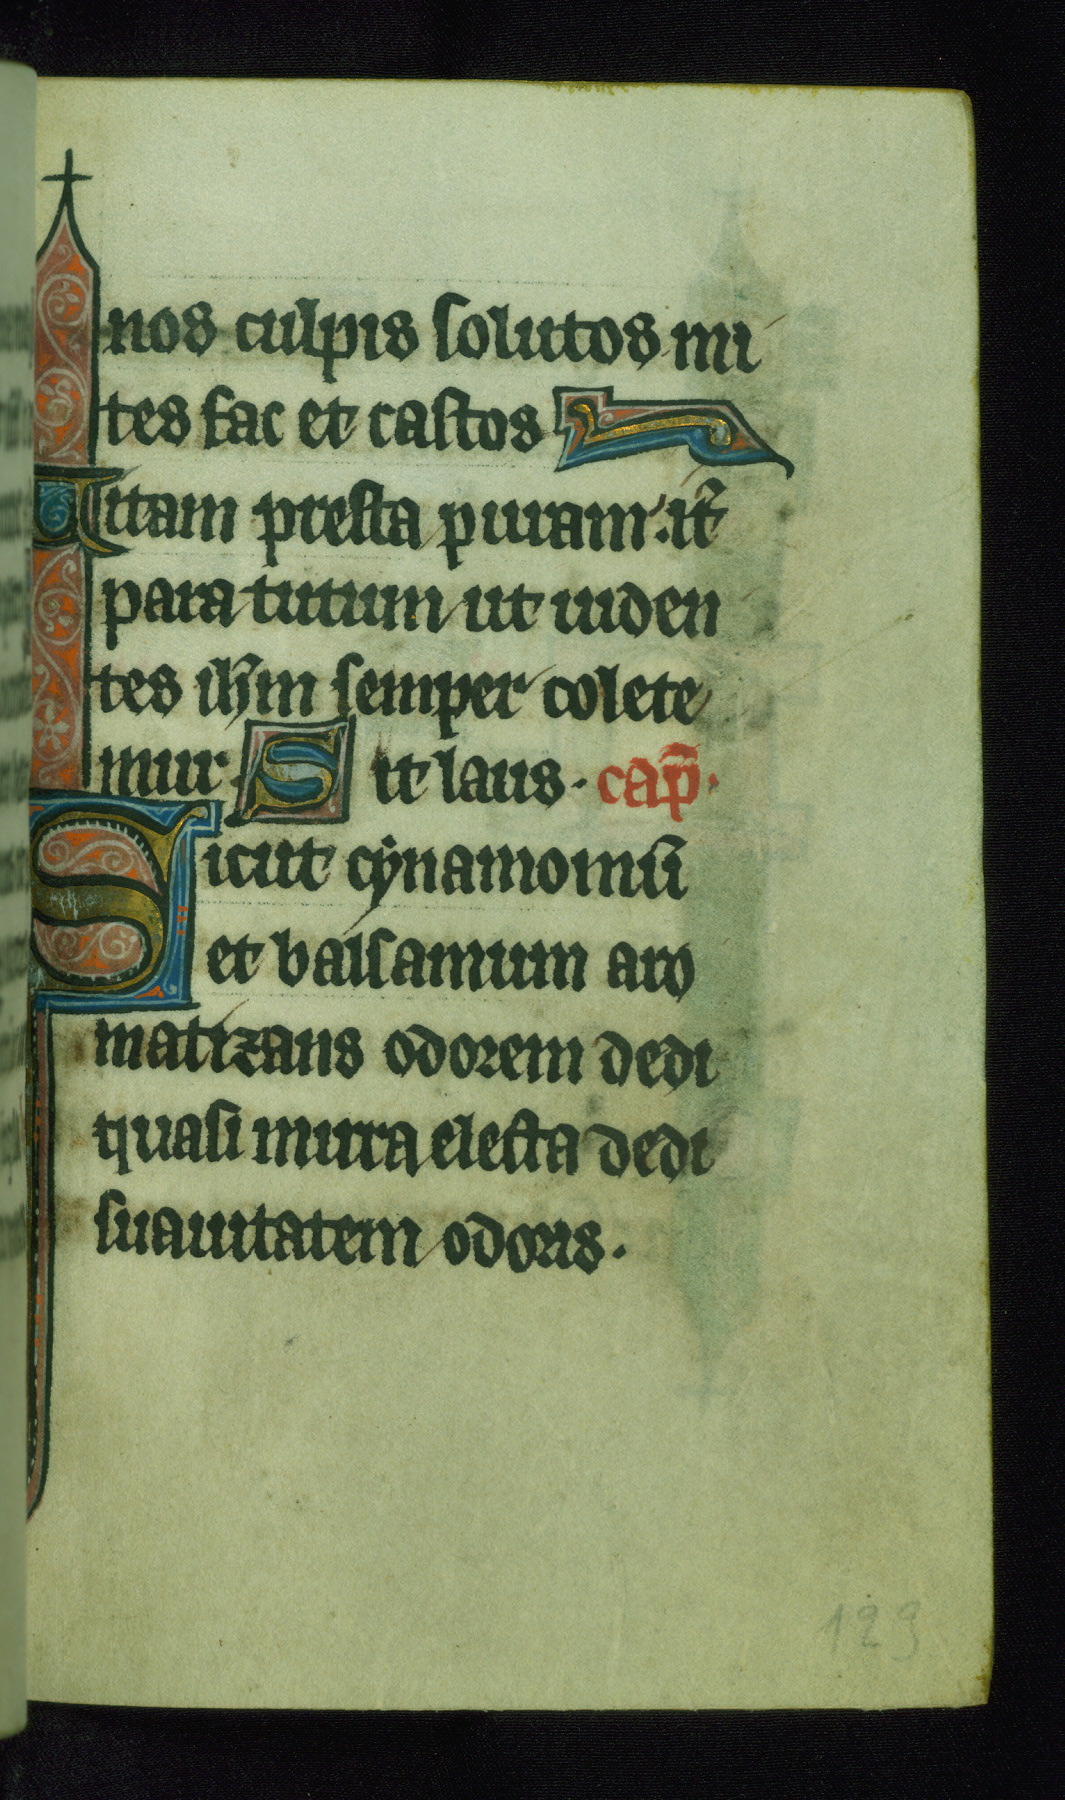 nos culpis solutos mi
tes fac et castos
Uitam presta puram. it̄
para tutum ut uiden
tes ih̄m semper colete
mur. Sit laus. cap̄.
Sicut cynamomū
et balsamum aro
matizans odorem dedi
quasi mirra electa dedi
suauitatem odoris.
129